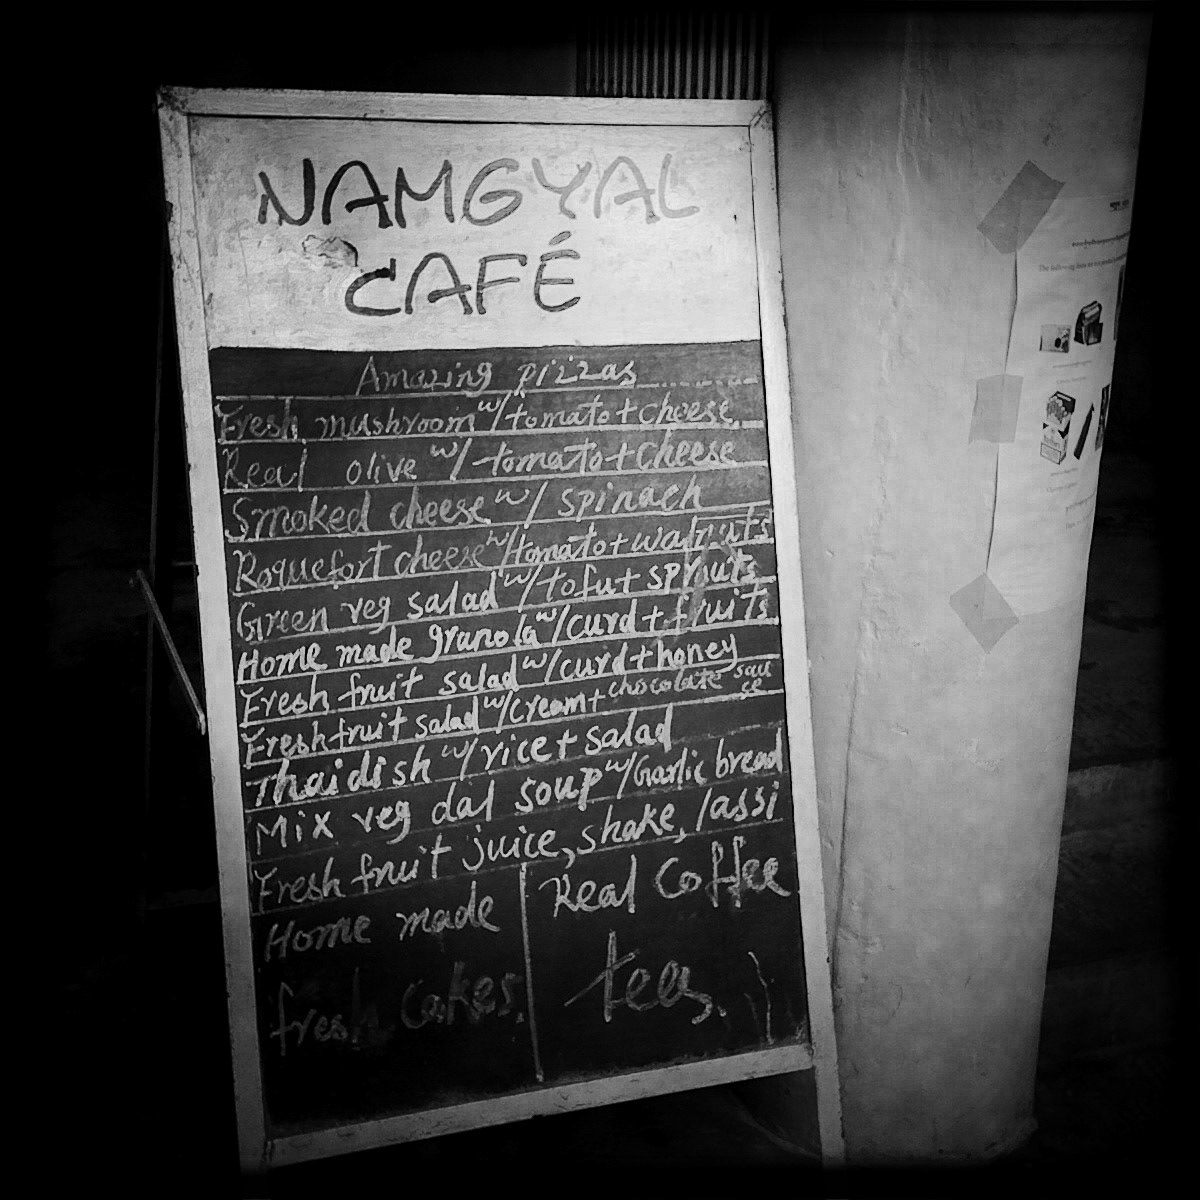 NAMGYAL
CAFÉ
Amazing pizzas
Fresh mushroom w/tomato+cheese
Real olive w/tomato+cheese
Smoked cheese w/ spinach
Roquefort cheese w/tomato+walnuts
Green veg salad w/tofu+ sprouts
Home made granola w/curd+fruits
Fresh fruit salad w/curd+honey
Fresh fruit salad w/cream+chocolate sauce
Thai dish w/rice+salad
Mix veg dal soup w/Garlic bread
Fresh fruit juice, shake, lassi
Home made
fresh Cakes.
Real Coffee
teas.